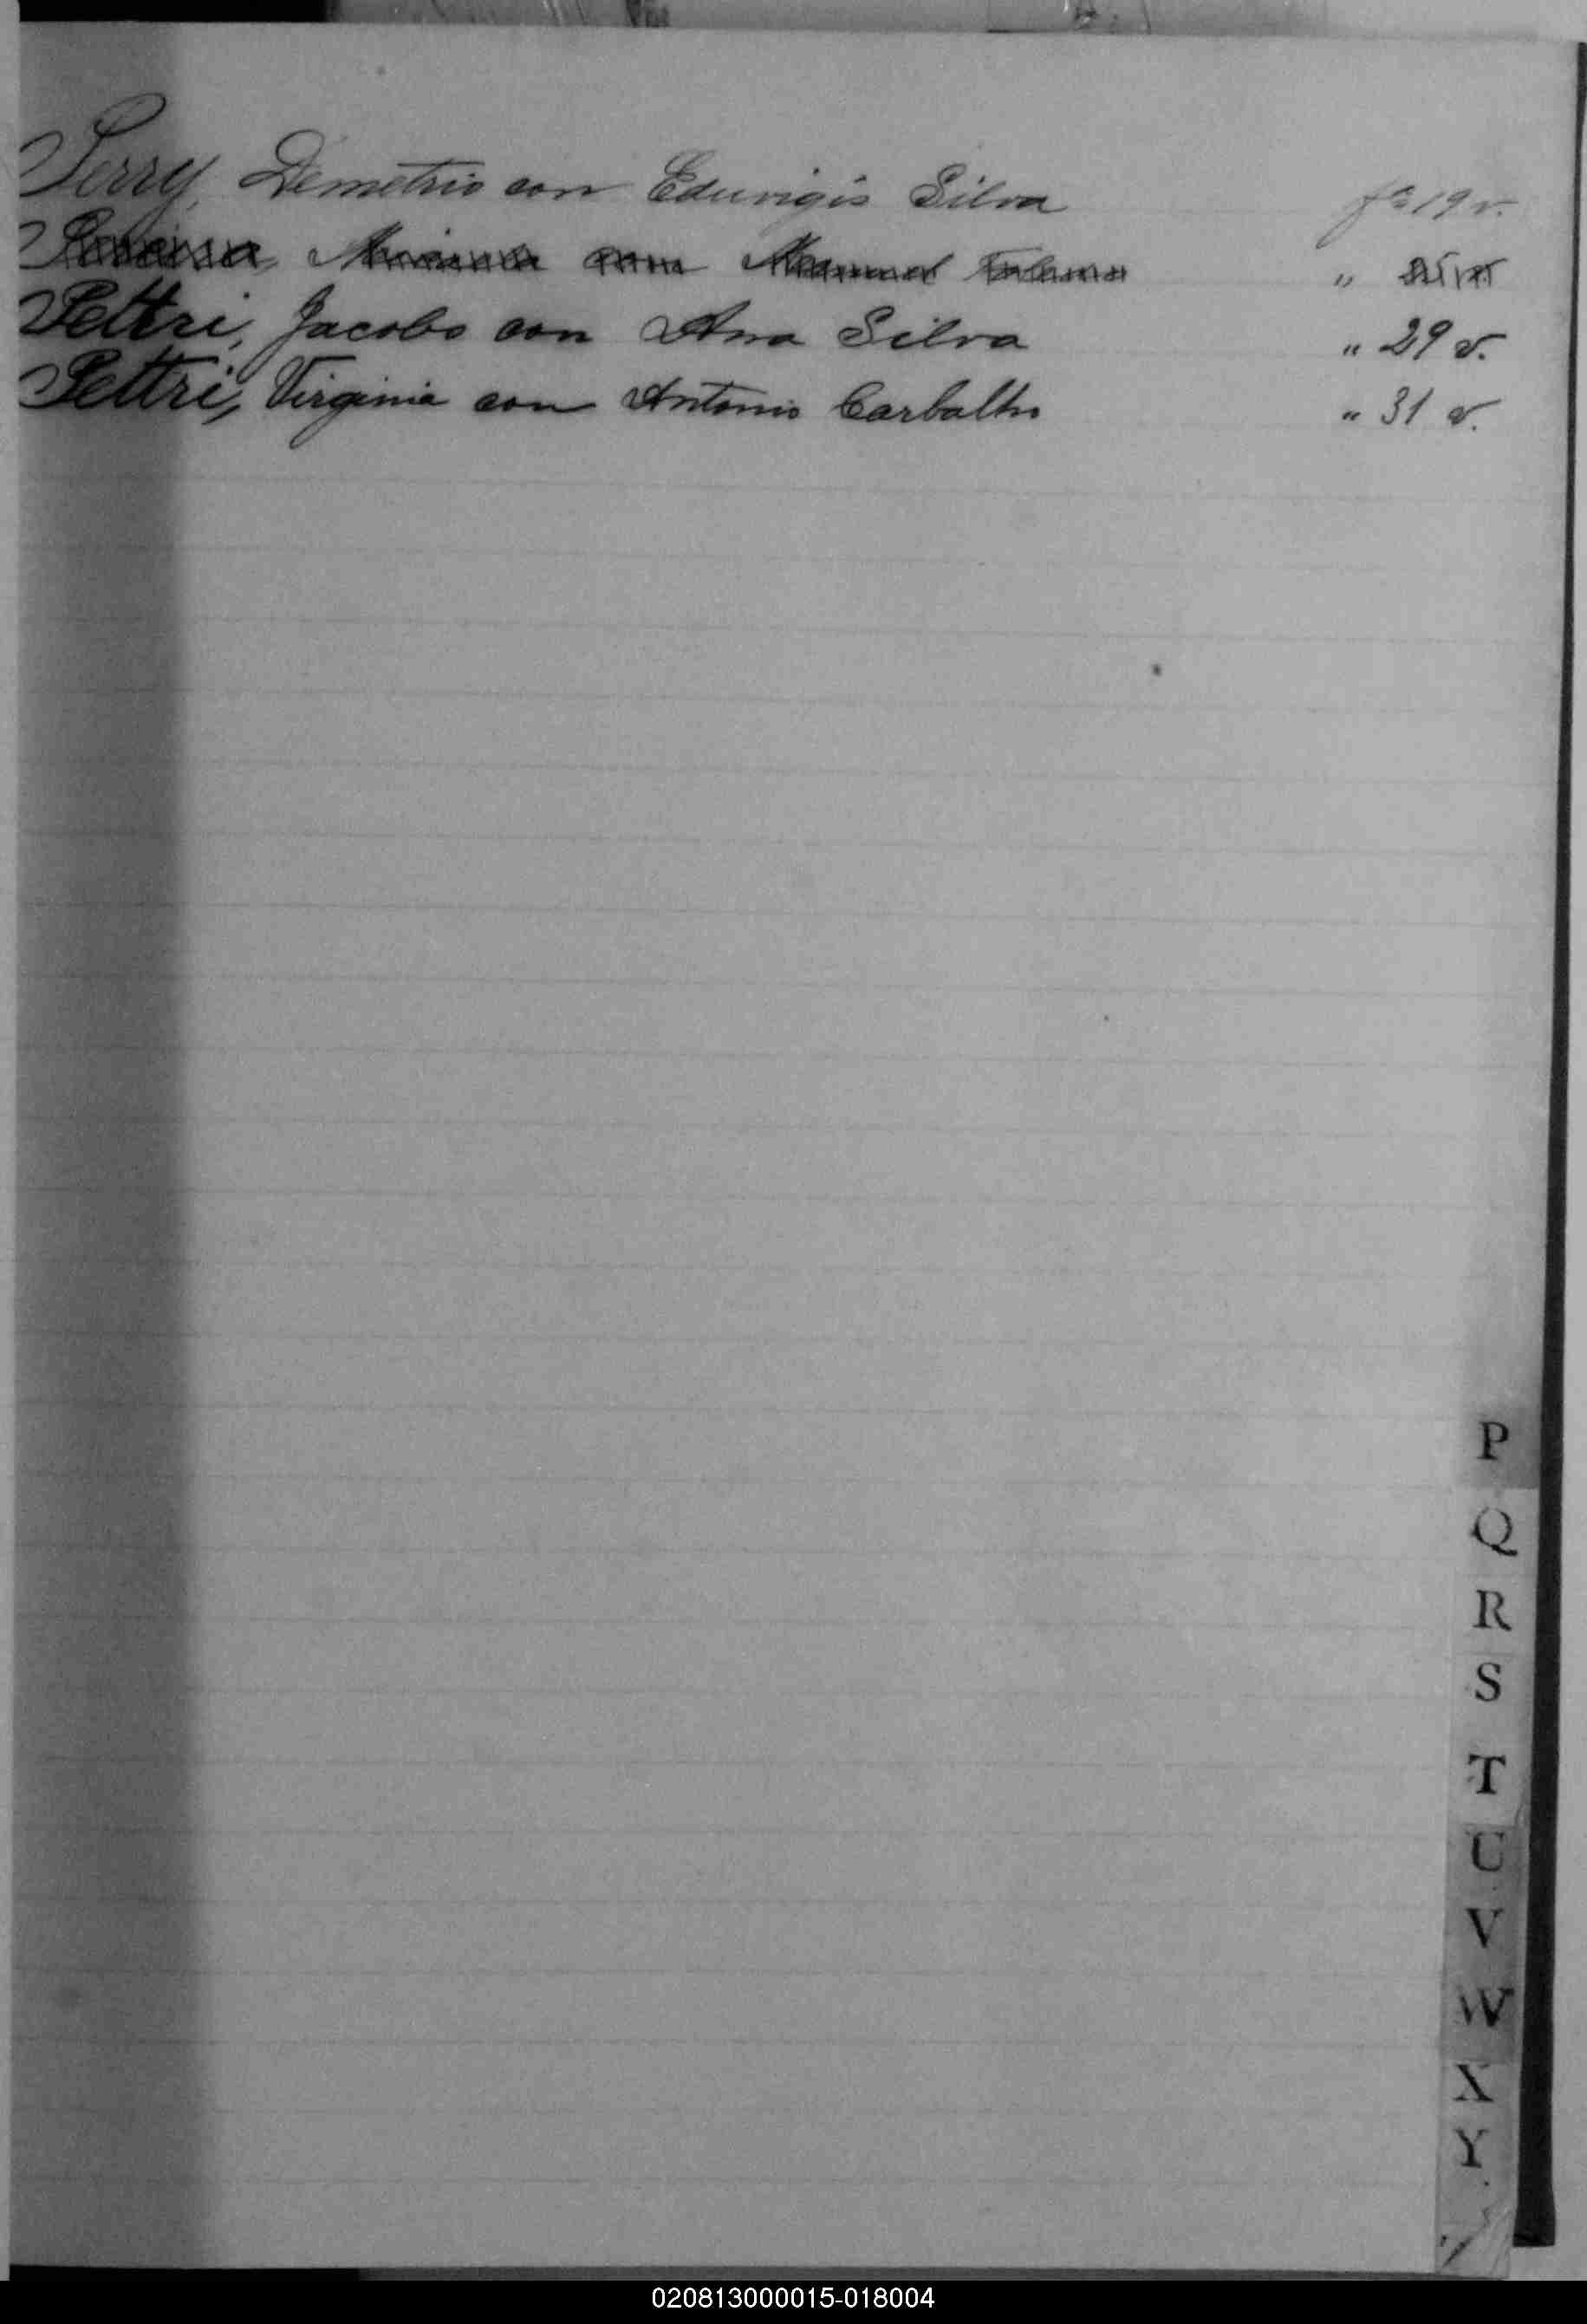 Perry, Demetrio con Eduvigis Silva fs 19 v.
con Manuel "
Pettri, Jacobo con Ana Silva " 29 v.
Pettri, Virginia con Antonio Carballo " 31 v.
P
Q
R
S
T
U
V
W
X
Y
020813000015-018004